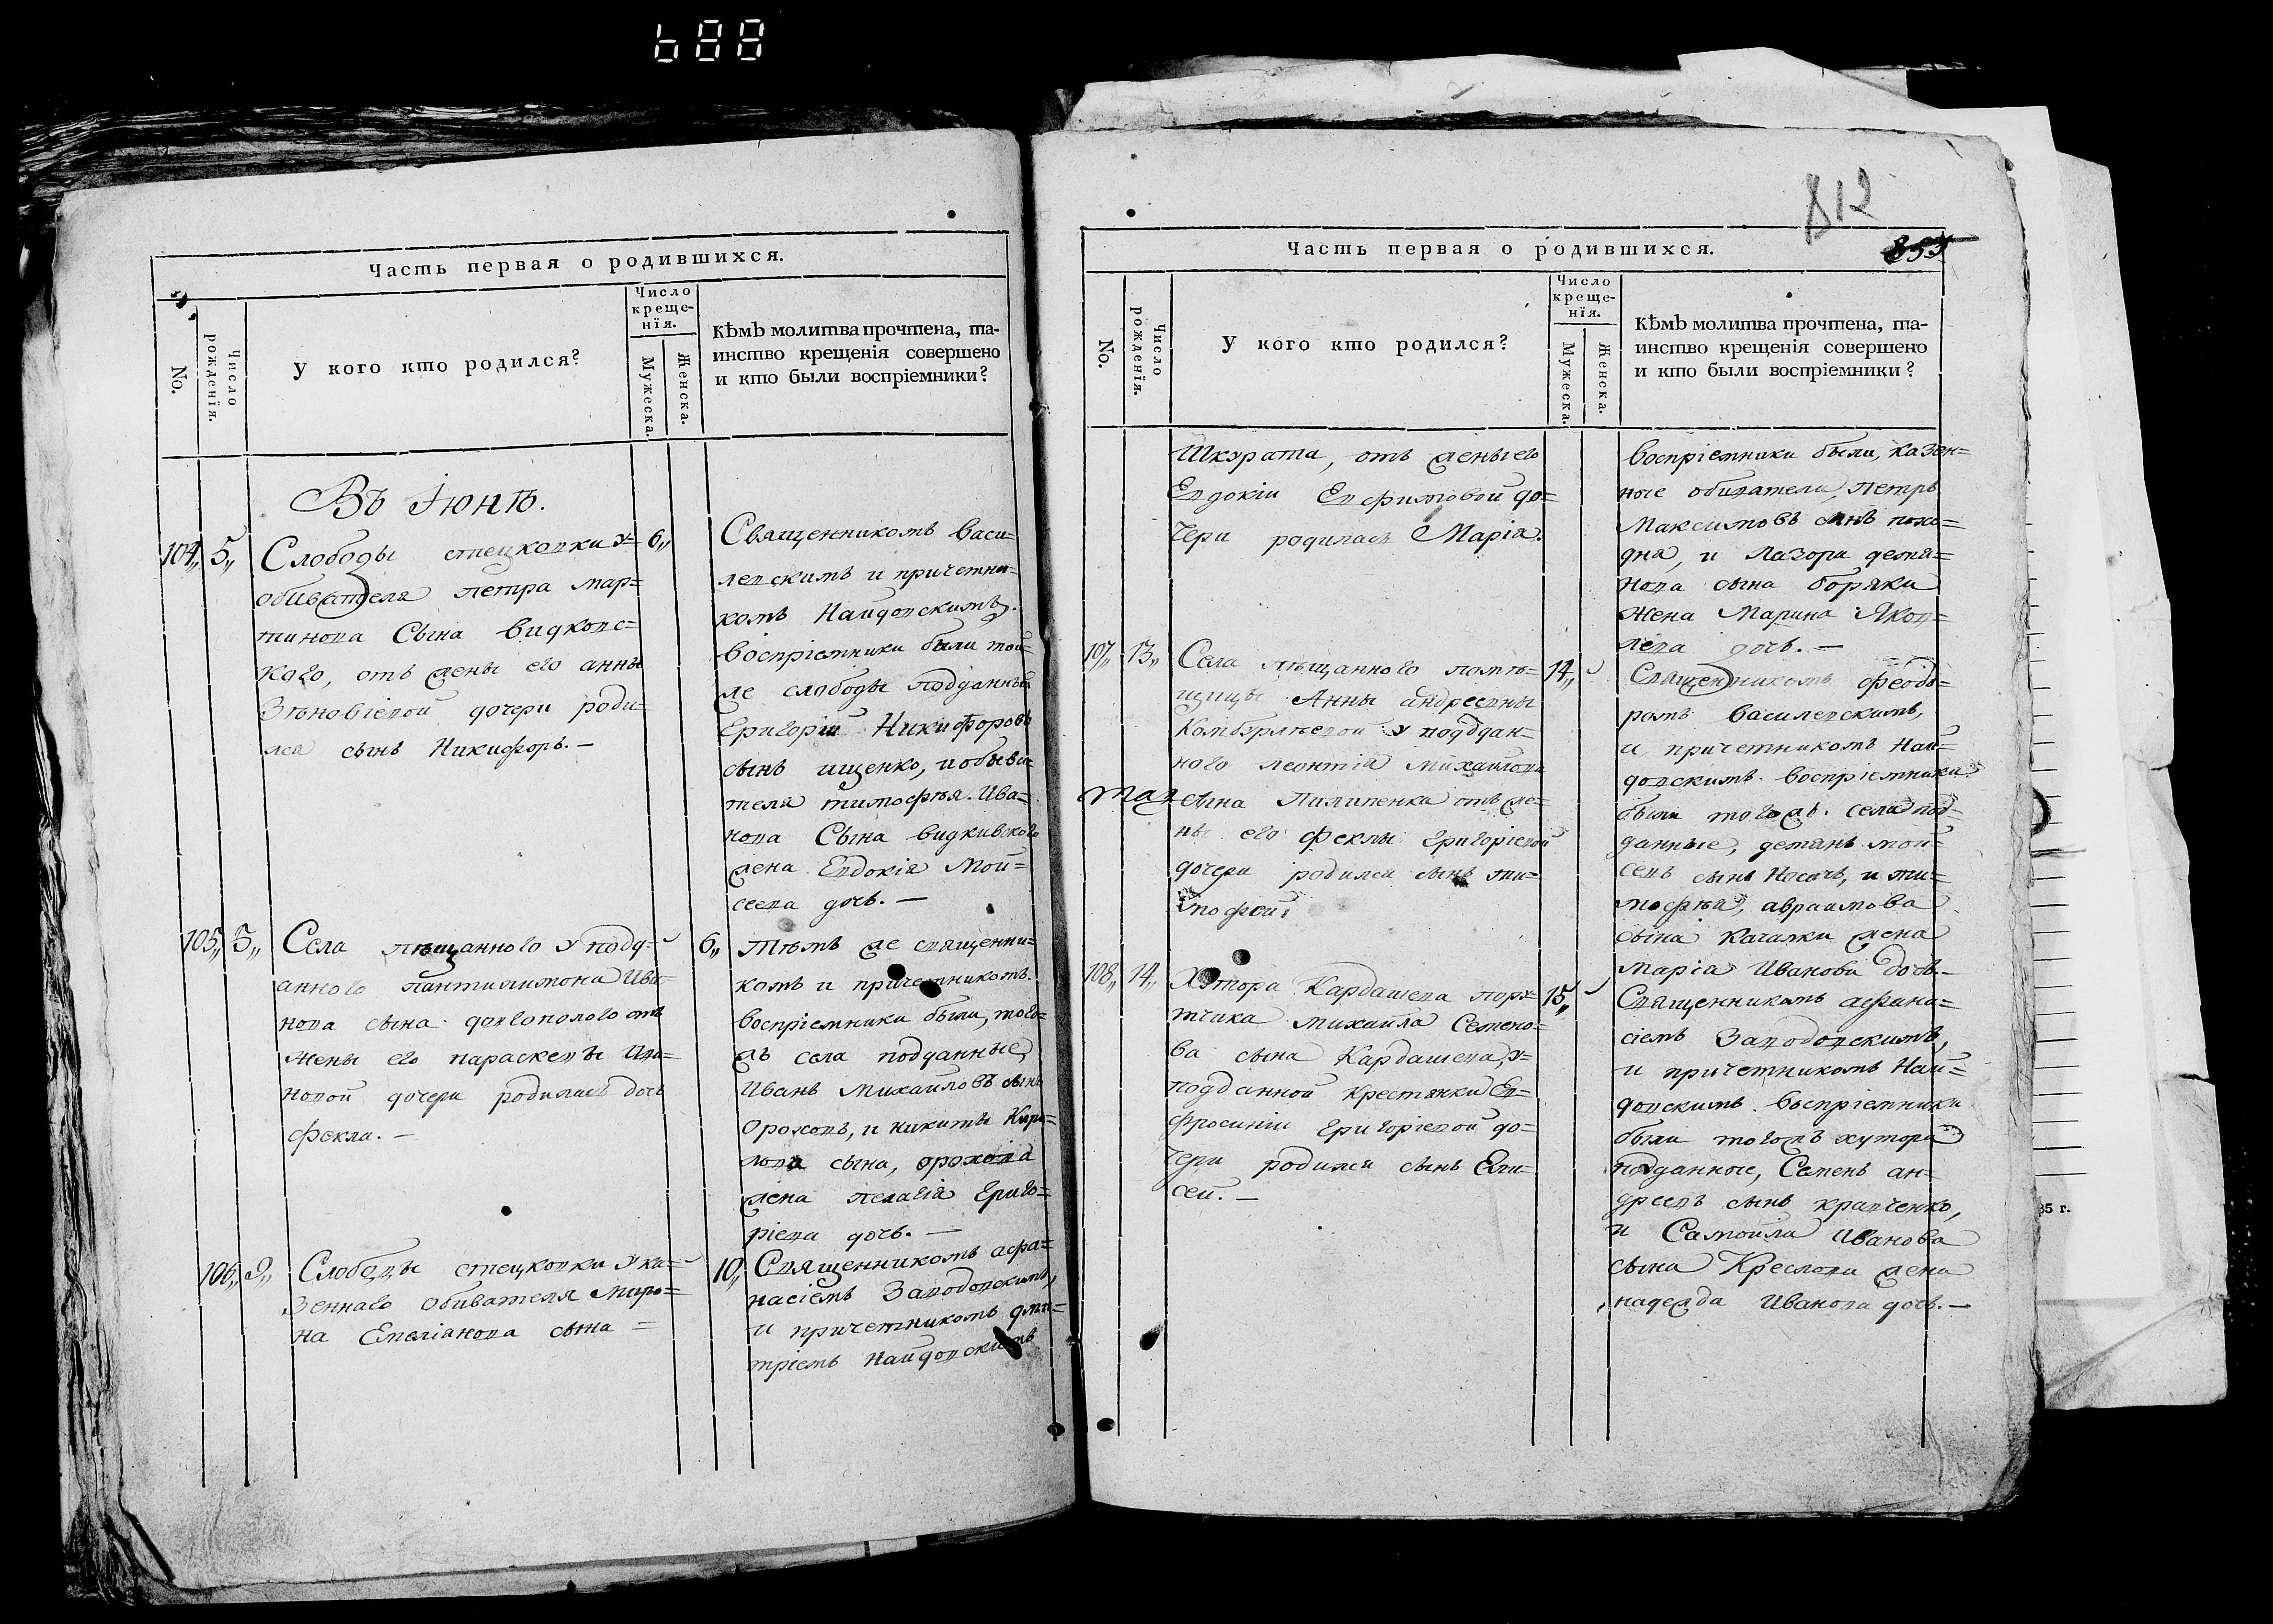 688
Часть первая о родившихся.
No.
Число рожденія.
У кого кто родился?
Число
креще-
нія.
Мужеска.
Женска.
Кѣмъ молитва прочтена, та-
инство крещенія совершено
и кто были воспріемники?
Въ Іюнѣ.
104,, 5,,
Слободы стецковки у=
обивателя петра мар=
тинова Сына видковс=
кого, отъ жены его анны
Зѣновіевой дочери роди=
лся сынъ Никифоръ. —
6,,
Священникомъ васи=
левскимъ и причетни=
комъ Найдовскимъ.
воспріемники были той=
же слободы подданный
Григорій Никифоровъ
сынъ ищенко, и обыва=
теля тимофѣя Ива=
нова Сына видкивского
жена Евдокія Мой=
сеева дочь. —
105,, 5,,
Села пѣщанного у подд=
анного пантилимона Ива=
нова сына долгополого отъ
жены его параскевы Ива=
новой дочери родилась дочь
фекла. —
6,,
Тѣмъ же священни=
комъ и причетникомъ.
воспріемники были, того=
жъ села подданные,
Иванъ Михайловъ сынъ
Ороховъ, и никиты Кири=
лова сына, орохова
жена пелагія Григо=
ріева дочь. —
106,, 9,,
Слободы стецковки у ка=
зеннаго обивателя миро=
на Емеліянова сына =
10,,
Священникомъ афа=
насіемъ Заводовскимъ,
и причетникомъ дми=
тріемъ Найдовскимъ
812
853
Часть первая о родившихся.
No.
Число рожденія.
У кого кто родился?
Число
креще-
нія.
Мужеска.
Женска.
Кѣмъ молитва прочтена, та-
инство крещенія совершено
и кто были воспріемники?
Шкурата, отъ жены его
Евдокіи Евфимовой до=
чери родилась Марія.
воспріемники были, казен=
ные обиватели, петръ
Максимовъ сынъ
и Лазора демя=
нова сына боряки
жена Марина Яков=
лева дочь. —
107,, 13,,
Села пѣщанного помѣ=
щицы Анны андреевны
у поддан=
ного леонтія михайлова
сына Пилипенка отъ же=
ны его феклы григоріевой
дочери родился сынъ ти=
мофей.
14,,
Священникомъ феодо=
ромъ василевскимъ,
и причетникомъ Най=
довскимъ. воспріемники
были тогожъ села под=
данные, демянъ мой=
сеевъ сынъ Носачъ, и ти=
мофѣя, авраимова
сына Качалки жена
марія Иванова дочь. —
108,, 14,,
Хутора Кардашева пору=
тчика михайла Семено=
ва сына Кардашева, у=
подданной крестянки Ев=
фросиніи григоріевой до=
чери родился сынъ Ели=
сей. —
15,,
Священникомъ афана=
сіемъ Заводовскимъ,
и причетникомъ Най=
довскимъ. воспріемники
были тогожъ хутора
подданные, Семенъ ан=
дреевъ сынъ кравченко,
и Самойла Иванова
сына Креслова жена
надежда Иванова дочь. —
35 г.